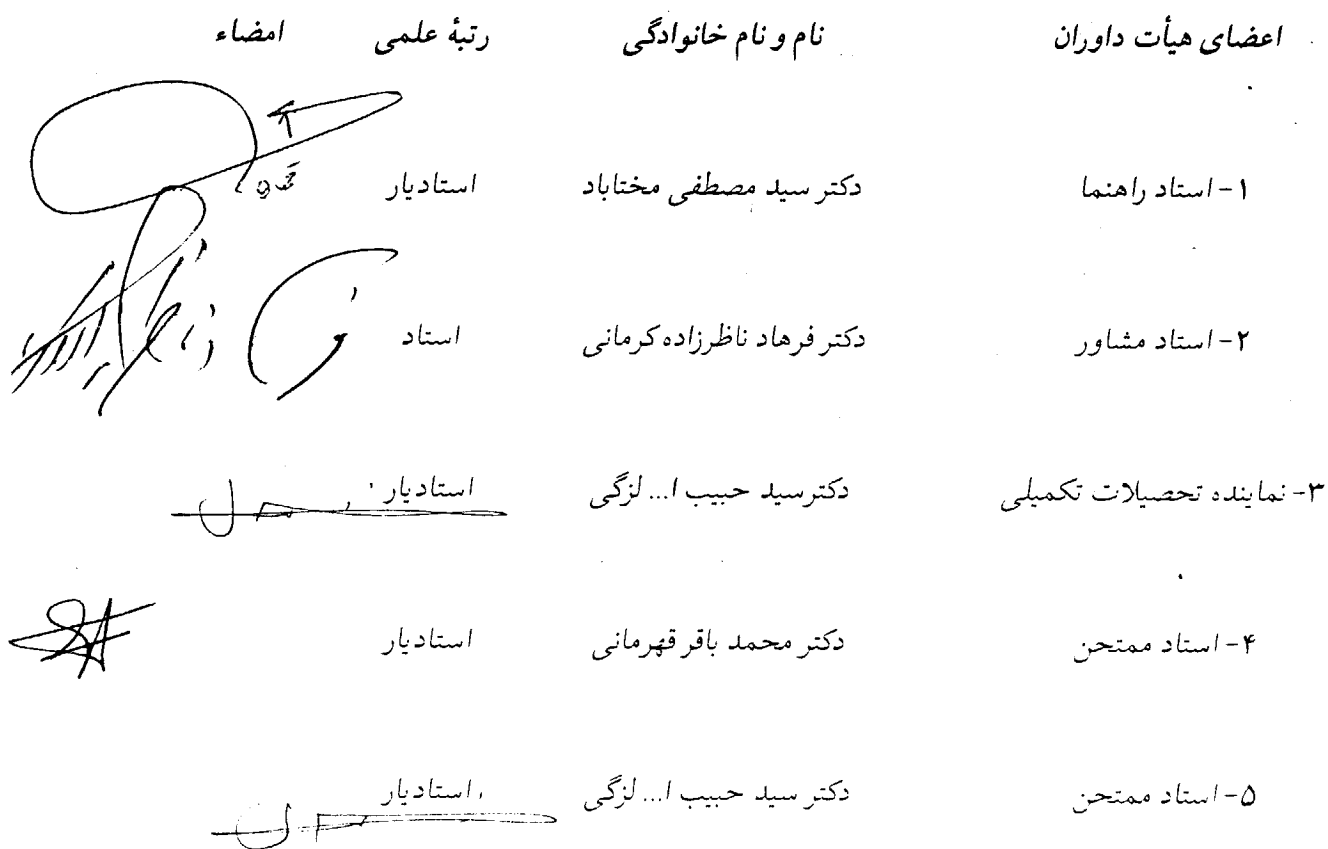 اعضای هیأت داوران نام و نام خانوادگی رتبهٔ علمی امضاء
۱- استاد راهنما دکتر سید مصطفی مختاباد استادیار
۲- استاد مشاور دکتر فرهاد ناظرزاده کرمانی استاد
۳- نماینده تحصیلات تکمیلی دکترسید حبیب ا... لزگی استادیار
۴- استاد ممتحن دکتر محمد باقر قهرمانی استادیار
۵- استاد ممتحن دکتر سید حبیب ا... لزگی استادیار